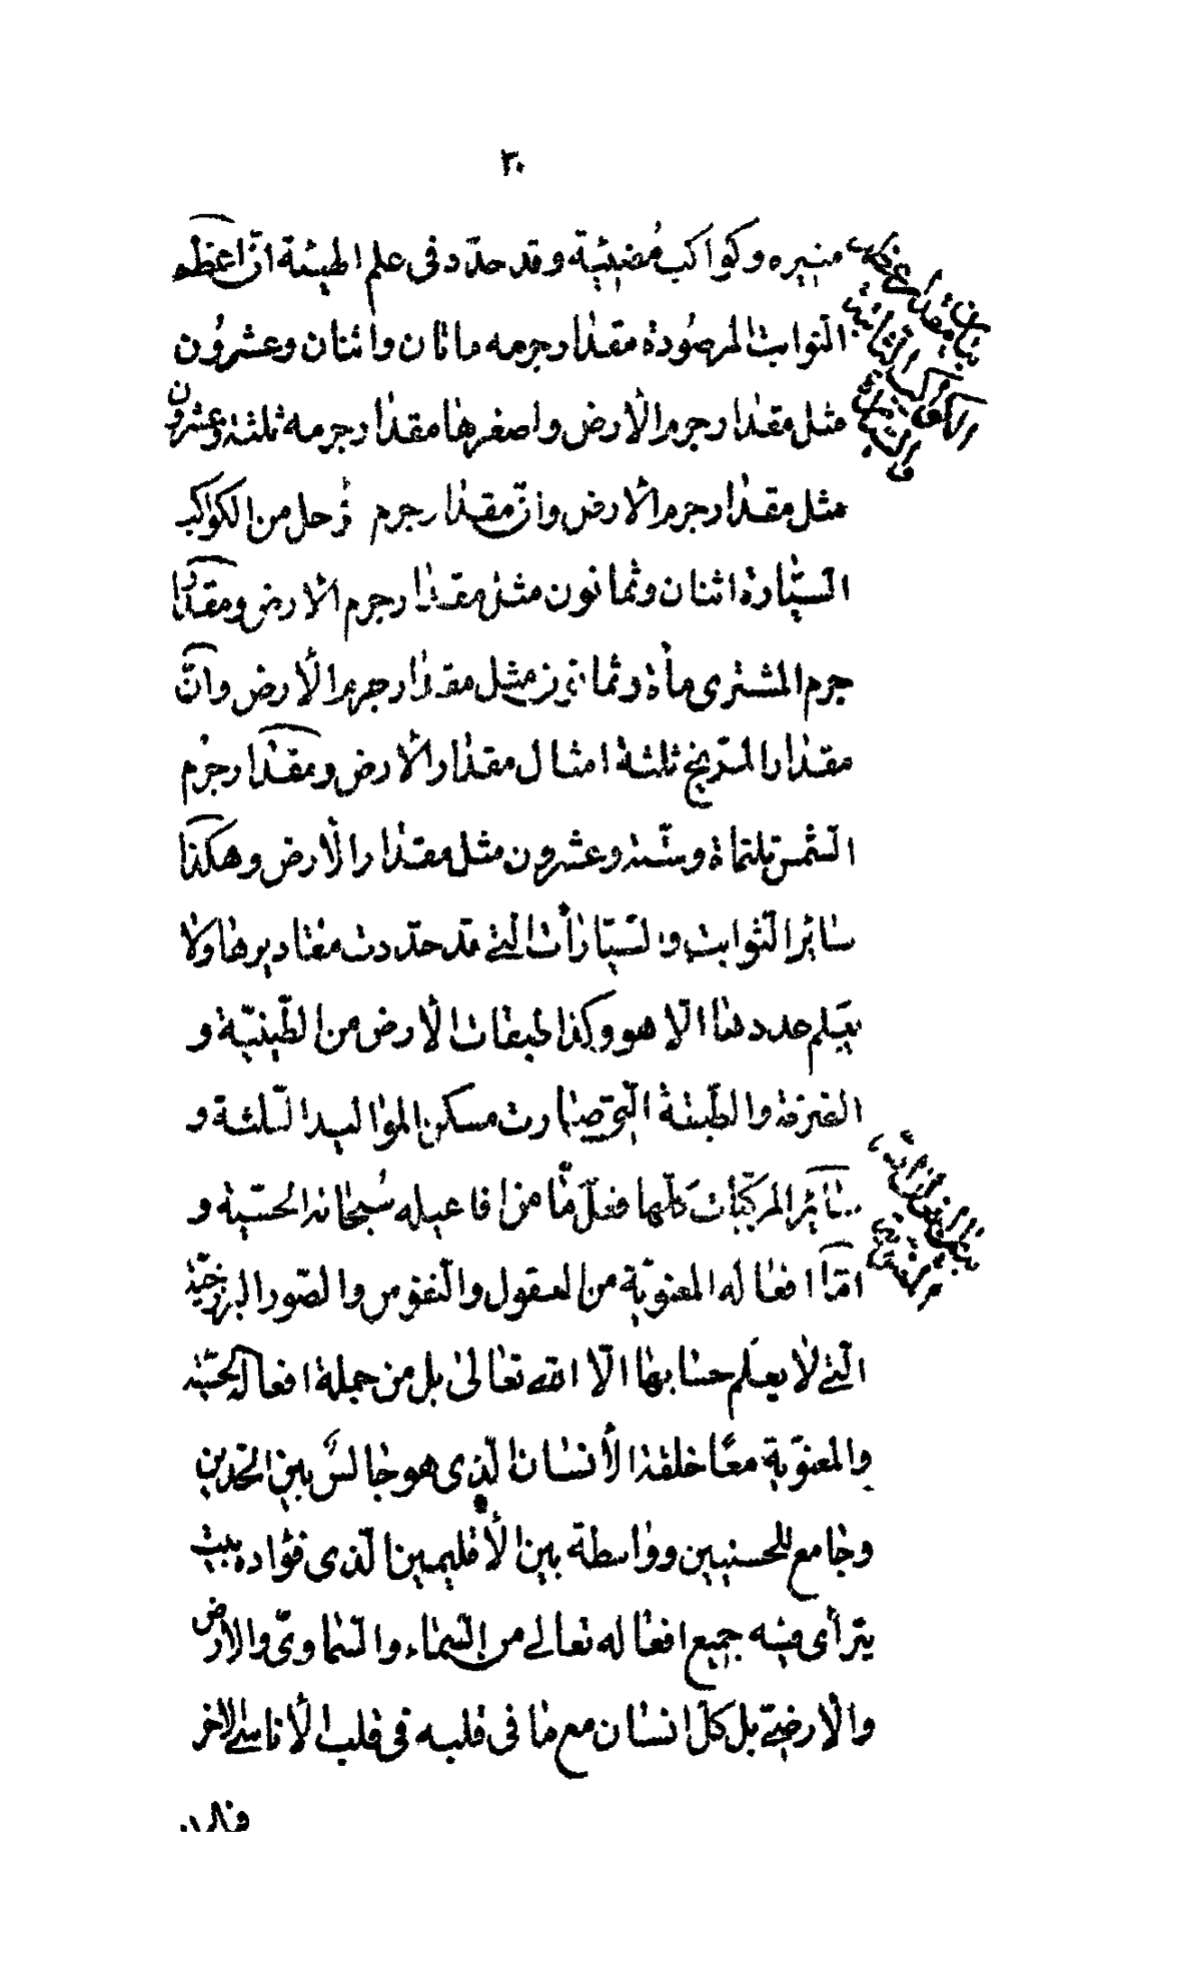 ٣٠
منيره وكواكب مُضيئية وقد حدّد فى علم الهيئة انّ اعظم
الثوابت المرصُودة مقدار جرمه مائتان واثنان وعشرُون
مثل مقدار جرم الأرض واصغرها مقدار جرمه ثلثة وعشرون
مثل مقدار جرم الأرض وانّ مقدار جرم زُحل من الكواكب
السيّارة اثنان وثمانون مثل مقدار جرم الأرض ومقدار
جرم المشترى مأة وثمانون مثل مقدار جرم الأرض وانّ
مقدار المرّيخ ثلثة امثال مقدار الأرض ومقدار جرم
الشّمس ثلثمأة وستّة وعشرون مثل مقدار الأرض وهكذا
سائر الثّوابت والسّيّارات الّتى قد حدّدت مقاديرها ولا
يعلم عددها الّا هو وكذا طبقات الأرض من الطّينيّة و
الصرفة والطّبقة الّتى صارت مسكن المواليد الثّلثة و
سائر المركّبات كلّها فعل مّا من افاعيله سُبحانه الحسّيّة و
امّا افعاله المعنويّة من العقول والنّفوس والصّور البرزخيّة
الّتى لا يعلم حسابها الّا الله تعالىٰ بل من جملة افعاله الحسّيّة
والمعنويّة معًا خلقة الأنسان الّذى هو جالسٌ بين الحدّين
وجامع للحسنيين وواسطة بين الأقليمين الّذى فؤاده بيت
يترأى فيه جميع افعاله تعالى من السّماء والسّماوىّ والارض
والأرضىّ بل كلّ انسان مع ما فى قلبه فى قلب الأناسى الاخر